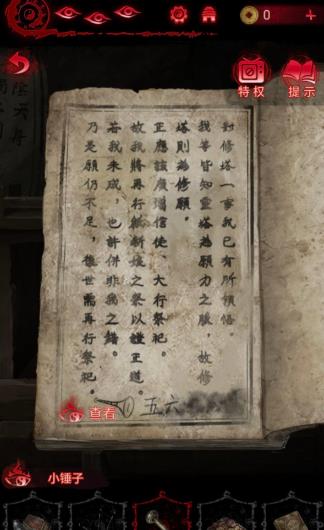 0
特权
提示
對修塔一事我已有所領悟。
我等皆知靈塔為願力之脈，故修
塔則為修願。
正應該廣增信徒、大行祭祀。
故我將再行紙新娘之祭以證王道。
若我未成，也許併非我之錯。
乃是願仍不足，後世需再行祭祀。
五六
查看
小锤子